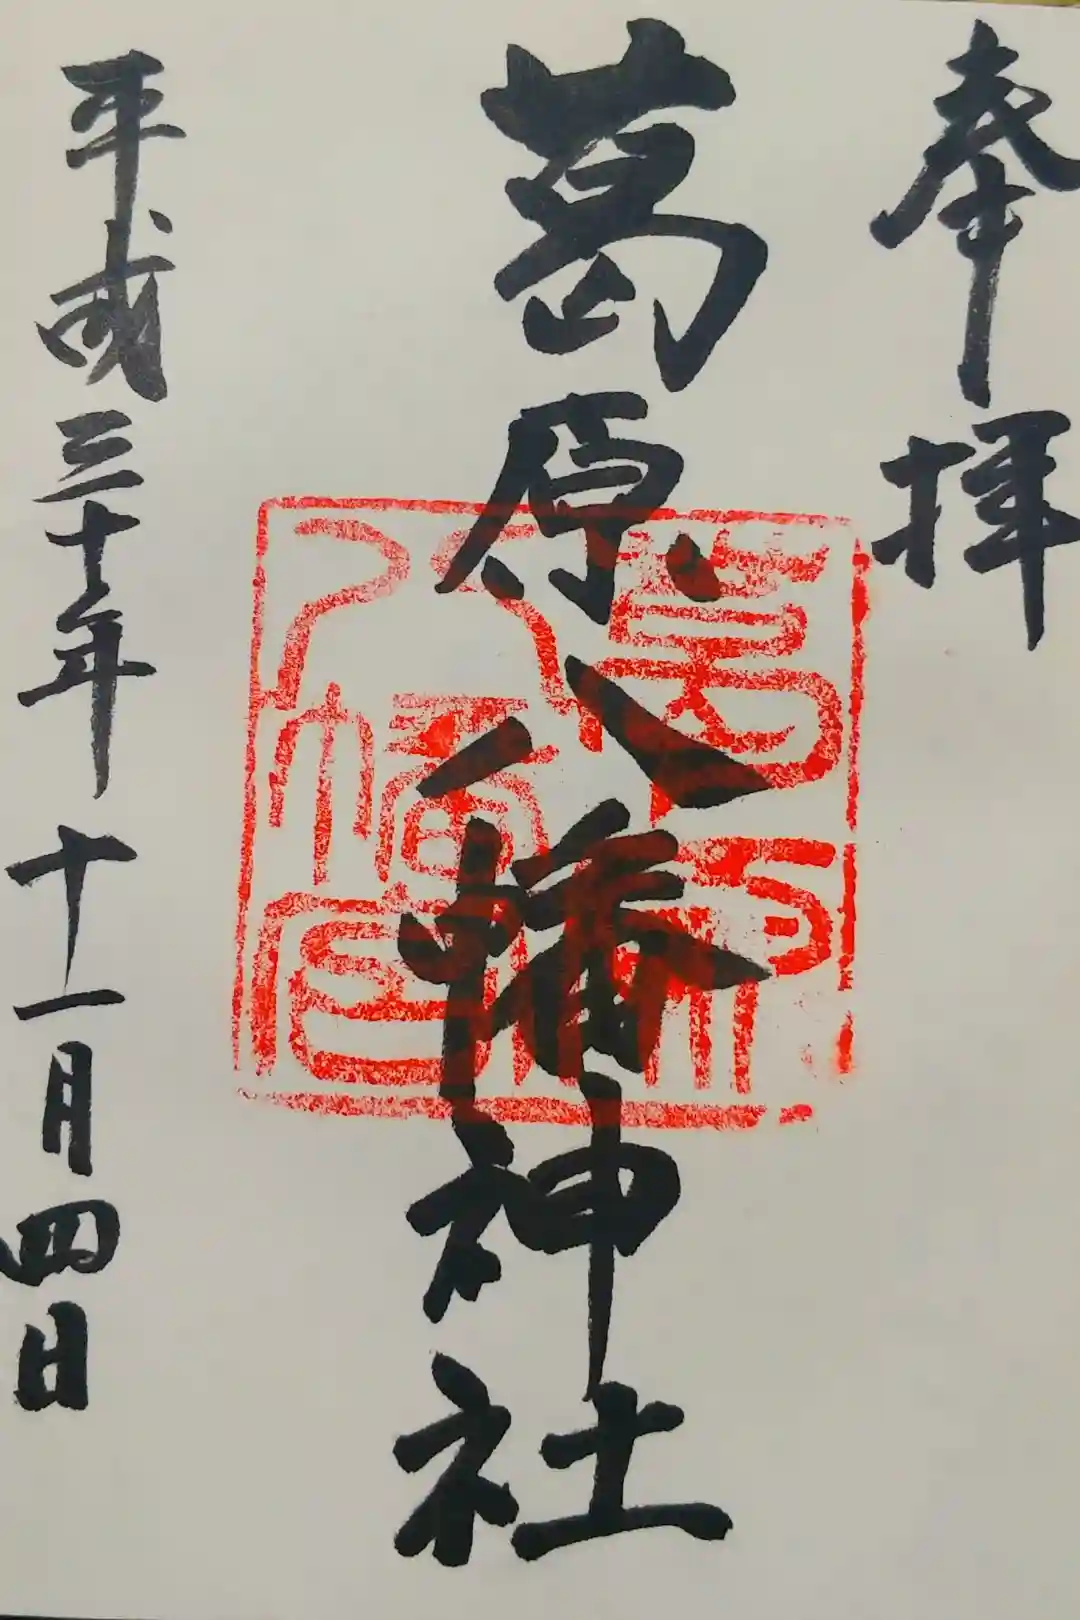 奉拝
葛原八幡神社
葛原八幡宮
平成三十年十一月四日